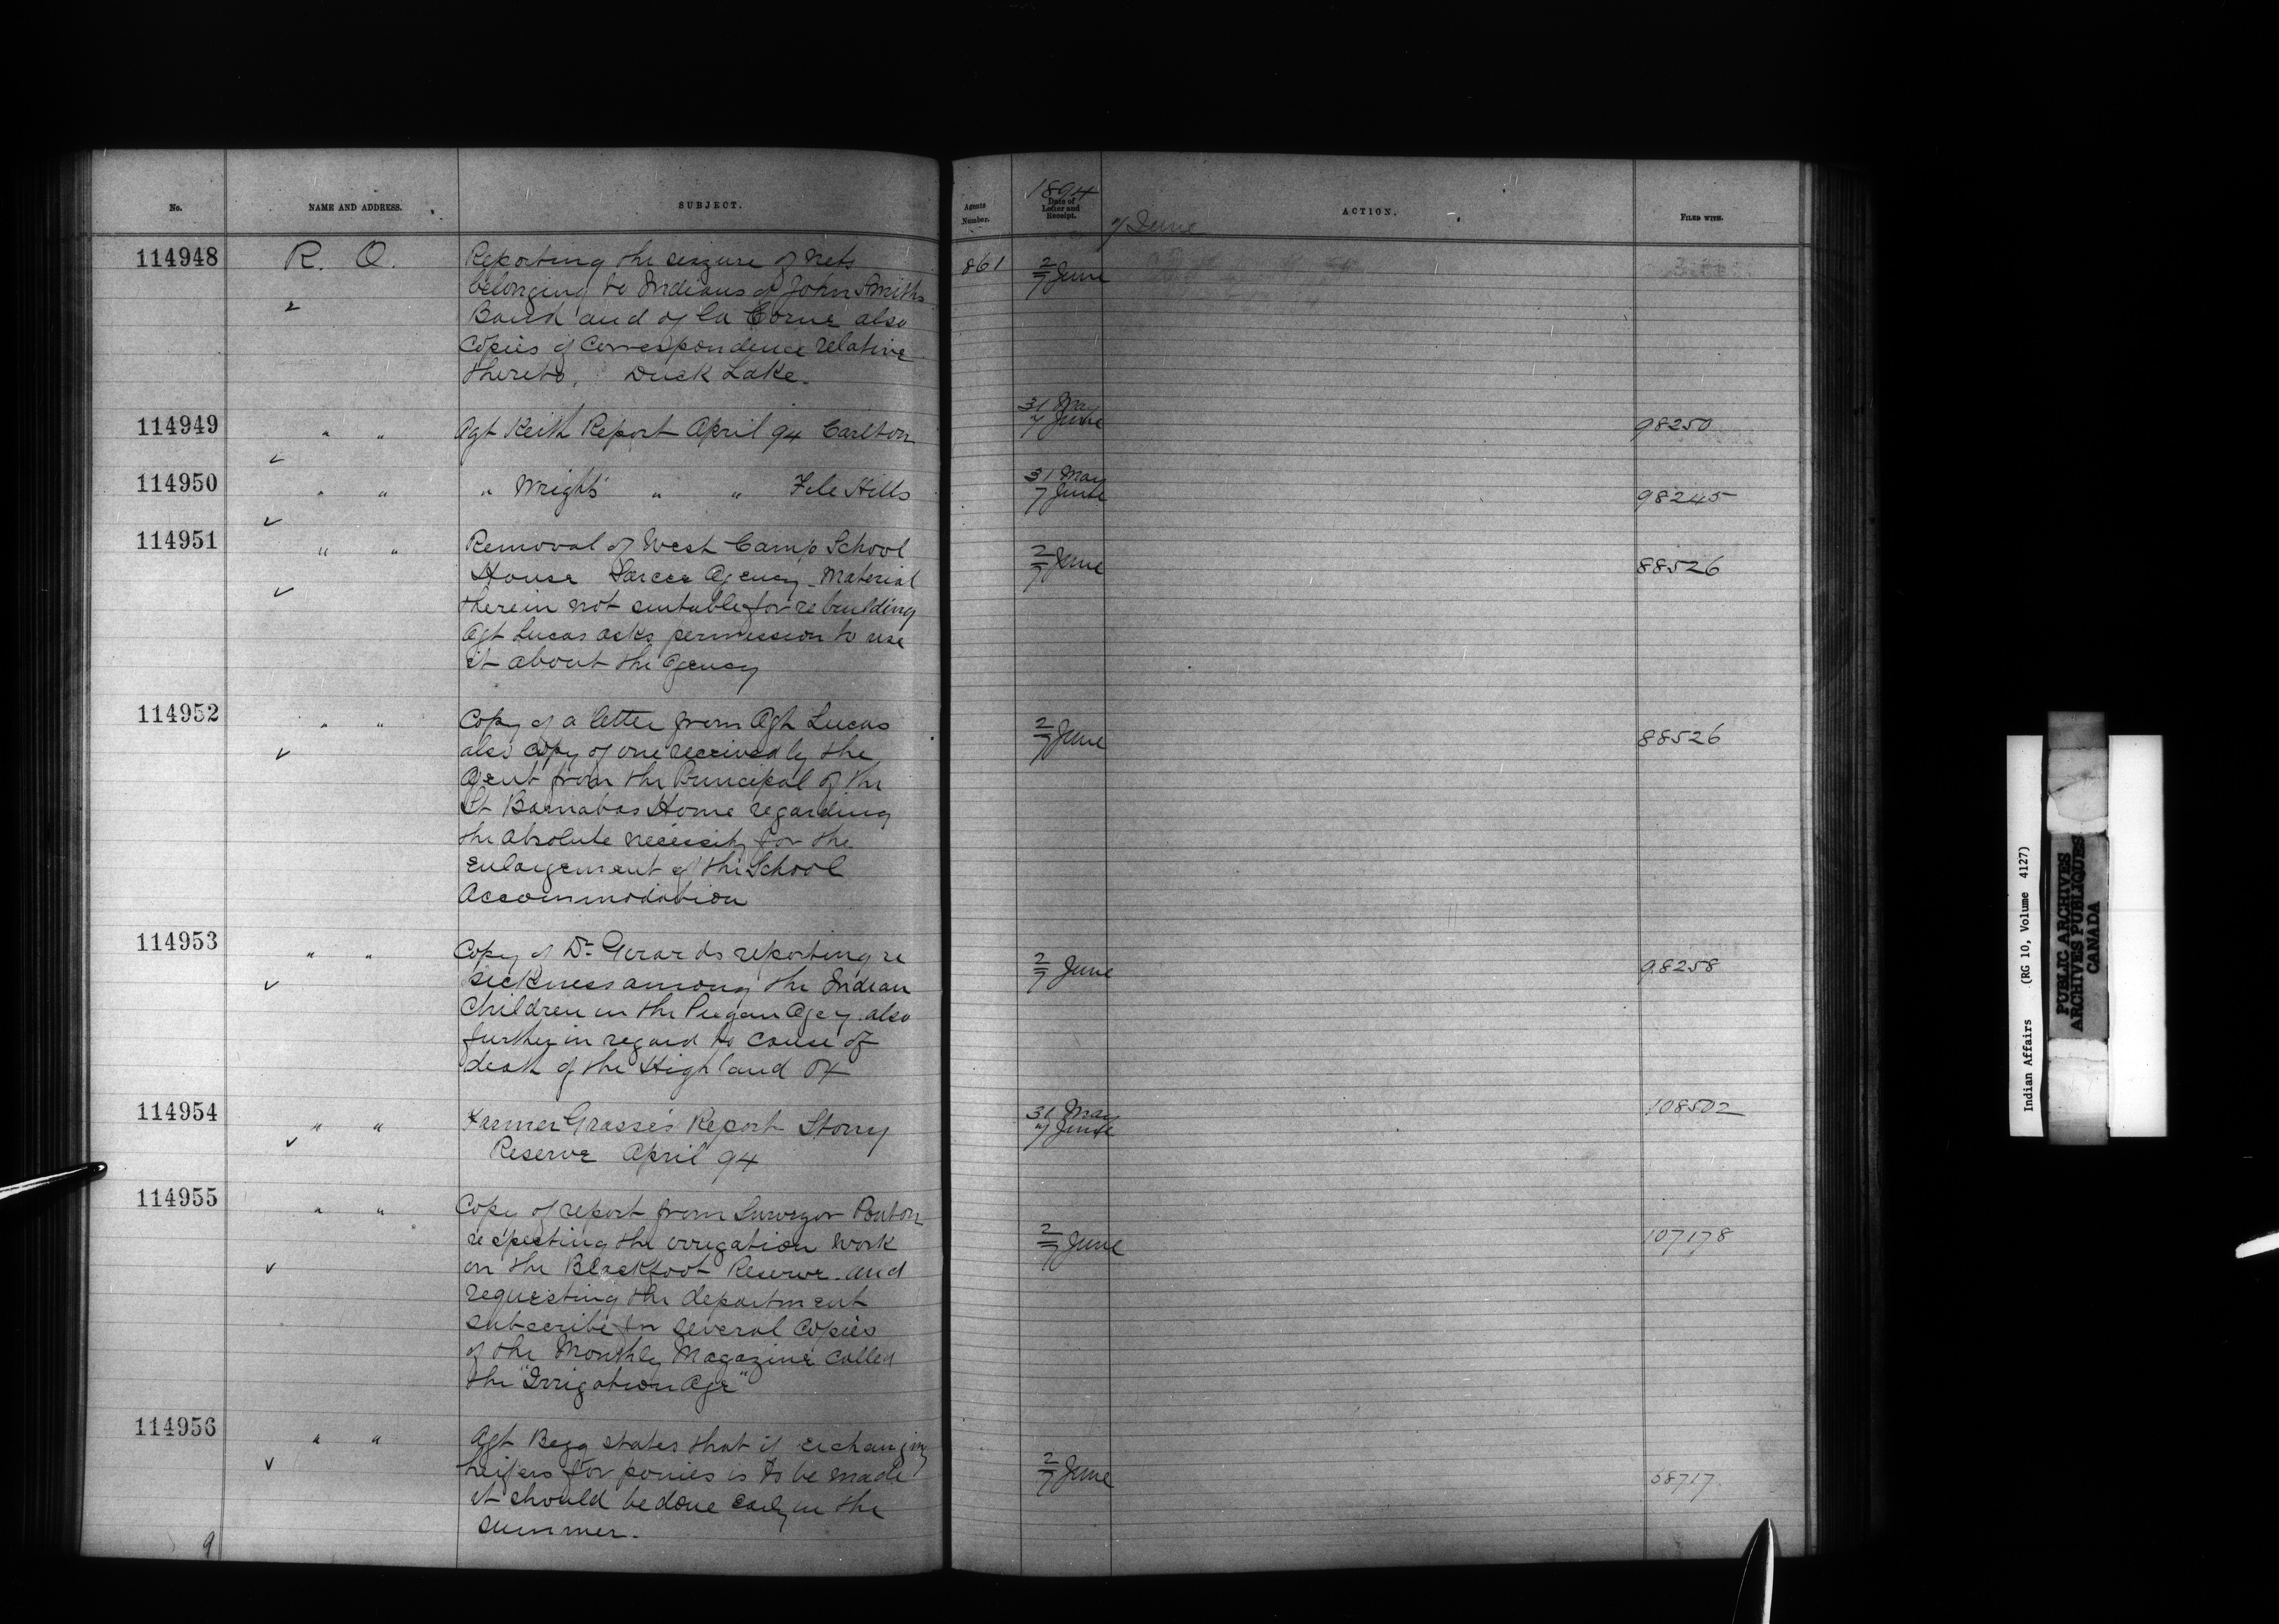 No.
NAME AND ADDRESS.
SUBJECT.
Agents Number.
1894
Date of Letter and Receipt.
7 June
ACTION.
FILED WITH.
114948
R. O.
861
2/7 June
Reporting the seizure of nets
belonging to Indians of John Smiths
Band and of La Corne also
Copies of Correspondence relative
thereto. Duck Lake.
114949
" "
Agt Keith Report April 94 Carlton
31 May
7 June
98250
114950
" "
" Wright's " " File Hills
31 May
7 June
98245
114951
" "
Removal of West Camp School
House Sarcee Agency - Material
therein not suitable for rebuilding
Agt Lucas asks permission to use
it about the Agency
2/7 June
88526
114952
" "
Copy of a letter from Agt Lucas
also copy of one received by the
Agent from the Principal of the
St Barnabas Home regarding
the absolute necessity for the
enlargement of the School
Accommodation
2/7 June
88526
114953
" "
Copy of Dr Girards reporting re
sickness among the Indian
Children in the Piegan Agcy. also
further in regard to cause of
death of the Highland Ox
2/7 June
98258
114954
" "
Farmer Grasse's Report Stony
Reserve April 94
31 May
7 June
108502
114955
" "
Copy of report from Surveyor Ponton
respecting the irrigation work
on the Blackfoot Reserve. and
requesting the department
subscribe for several copies
of the Monthly Magazine called
the "Irrigation Age"
2/7 June
107178
114956
" "
Agt Begg states that if exchanging
heifers for ponies is to be made
it should be done early in the
summer.
2/7 June
58717
9
Indian Affairs (RG 10, Volume 4127)
PUBLIC ARCHIVES
ARCHIVES PUBLIQUES
CANADA